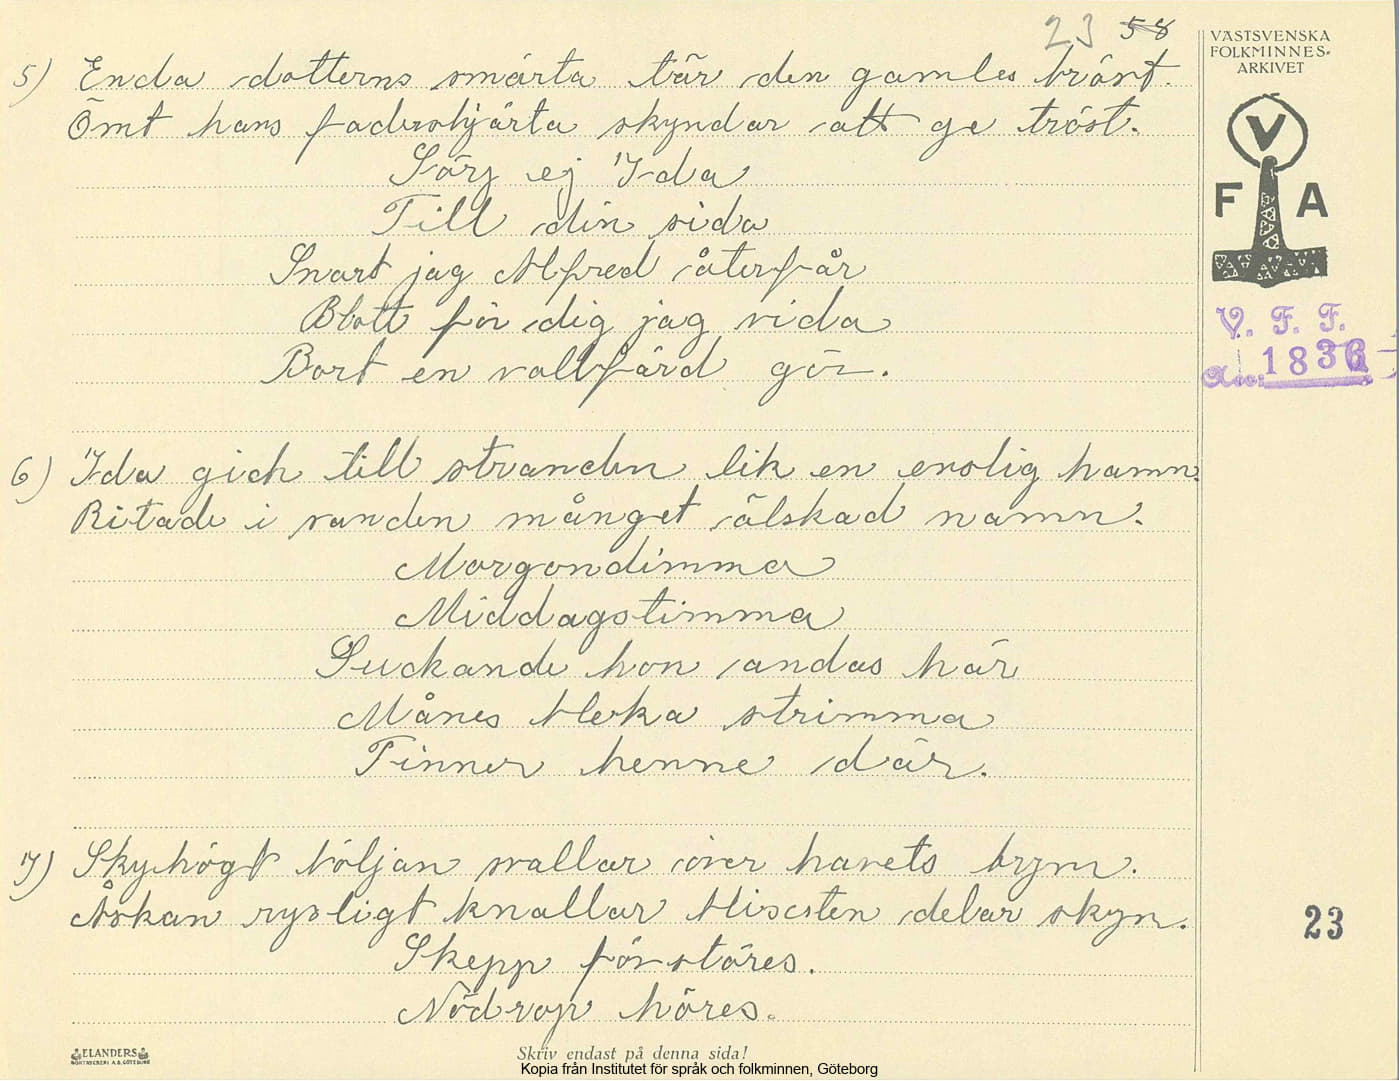 23 58
VÄSTSVENSKA
FOLKMINNES-
ARKIVET
V
F A
V. F. F.
1836
5) Enda dotterns smärta tär den gamles bröst.
Ömt hans fadershjärta skyndar att ge tröst.
Sörj ej Ida
Till din sida
Snart jag Alfred återfår
Blott för dig jag vida
Bort en vallfärd gör.
6) Ida gick till stranden lik en enslig hamn.
Ritade i sanden månget älskad namn.
Morgondimma
Middagstimma
Suckande hon andas här
Månes bleka strimma
Finner henne där.
7) Skyhögt böljan svallar över havets bryn.
Åskan rysligt knallar blixten delar skyn.
Skepp förstöres.
Nödrop höres.
23
ELANDERS
BOKTRYCKERI A.B. GÖTEBORG
Skriv endast på denna sida!
Kopia från Institutet för språk och folkminnen, Göteborg